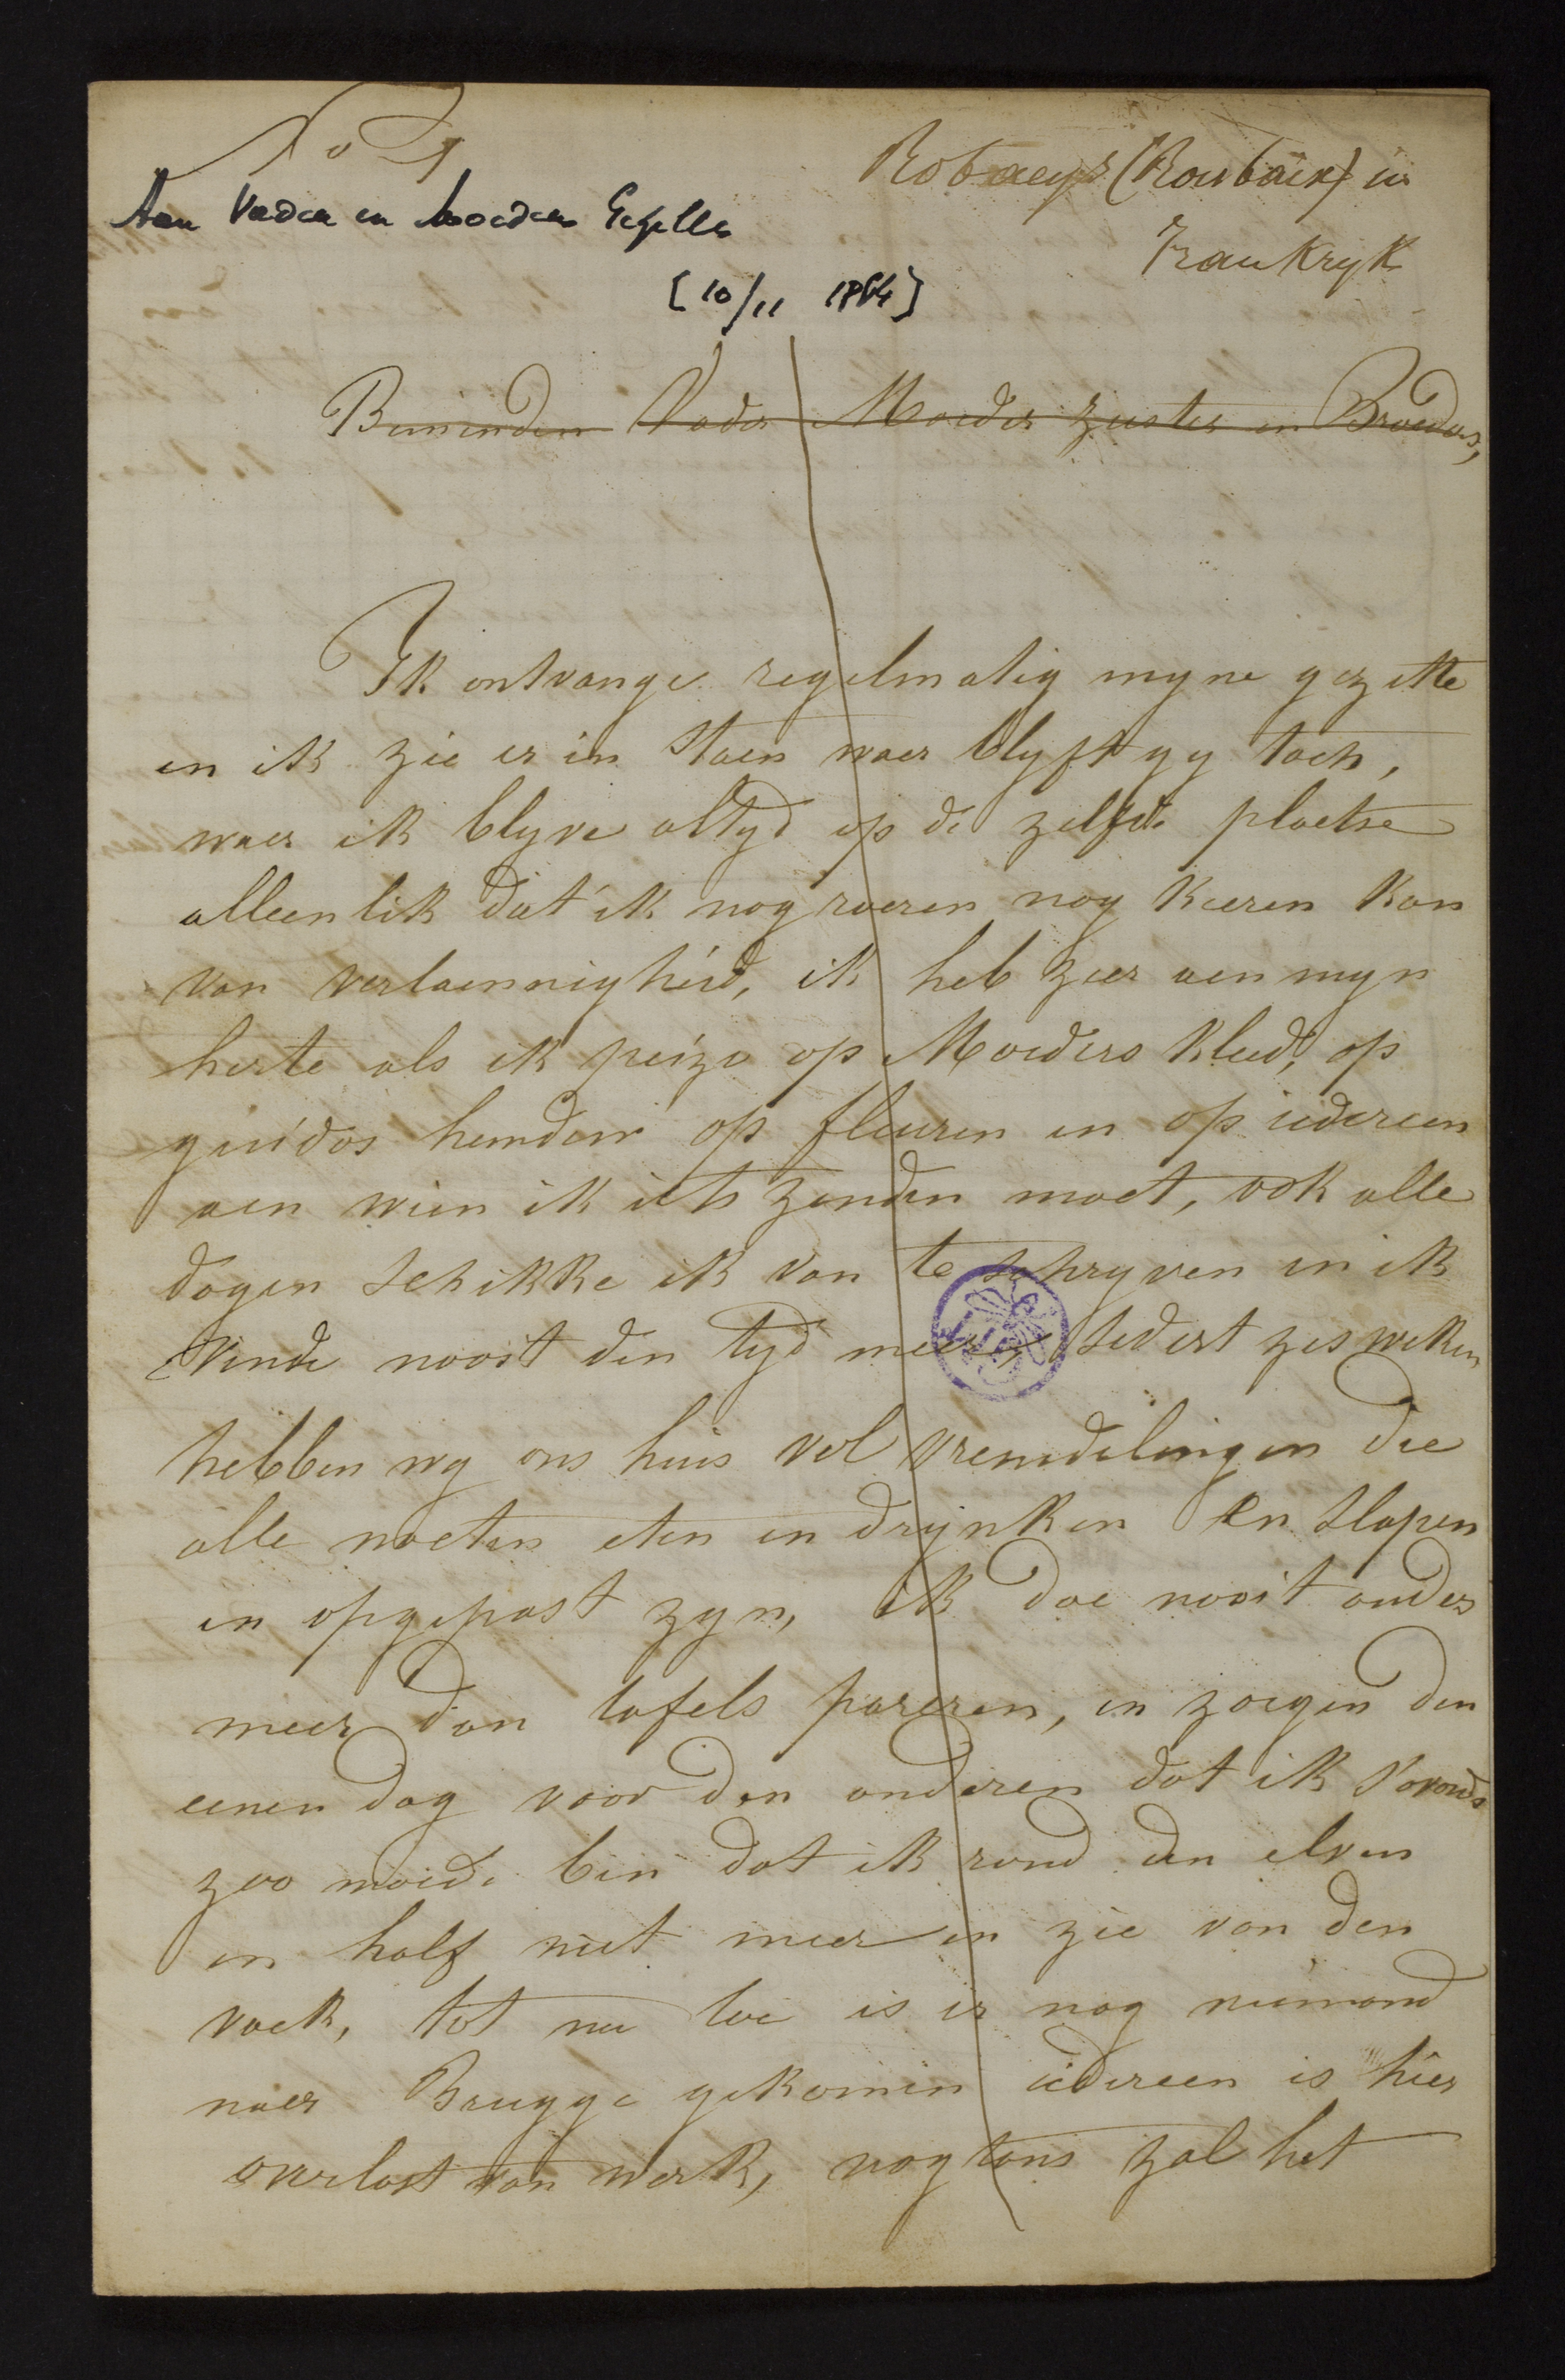 No 1
Robaeys (Roubaix) in
Aan Vader en Moeder Gezelle
Frankryk
[10/11 1864]
Beminden Vader Moeder zuster en Broeders,
Ik ontvange regelmatig myne gezette
en ik zie er in staen waer blyft gy toch,
waer ik blyve altyd op de zelfde plaetse
alleenlik dat ik nog roeren nog keeren kan
van verlaennigheid, ik heb zeer aen myn
herte als ik peize op Moeders kleed, op
guidos hemden op fleuren en op iedereen
aen wien ik iets zenden moet, ook alle
dagen schikke ik van te schryven en ik
vinde nooit den tyd meer, sedert zes weken
hebben wy ons huis vol vremdelingen die
alle moeten eten en drynken en slapen
en opgepast zyn, ik doe nooit anders
meer dan tafels pareren, en zorgen den
eenen dag voor den anderen dat ik s'avonds
zoo moede ben dat ik rond den elven
en half niet meer en zie van den
vaek, tot nu toe is er nog niemand
naer Brugge gekomen iedereen is hier
overlast van werk, nogtans zal het